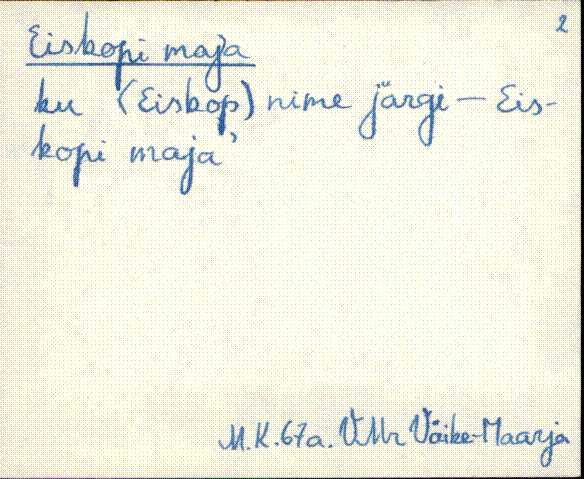 2
Eiskopi maja
ku (Eiskop) nime järgi — Eis-
kopi maja'
M.K. 67a. VMr Väike-Maarja